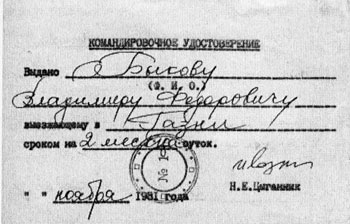 КОМАНДИРОВОЧНОЕ УДОСТОВЕРЕНИЕ
Выдано Быкову
(Ф. И. О.)
Владимиру Федоровичу
выезжающему в Газни
сроком на 2 месяца суток.
№ 1
Н.Е.Цыганник
" " ноября 1981 года